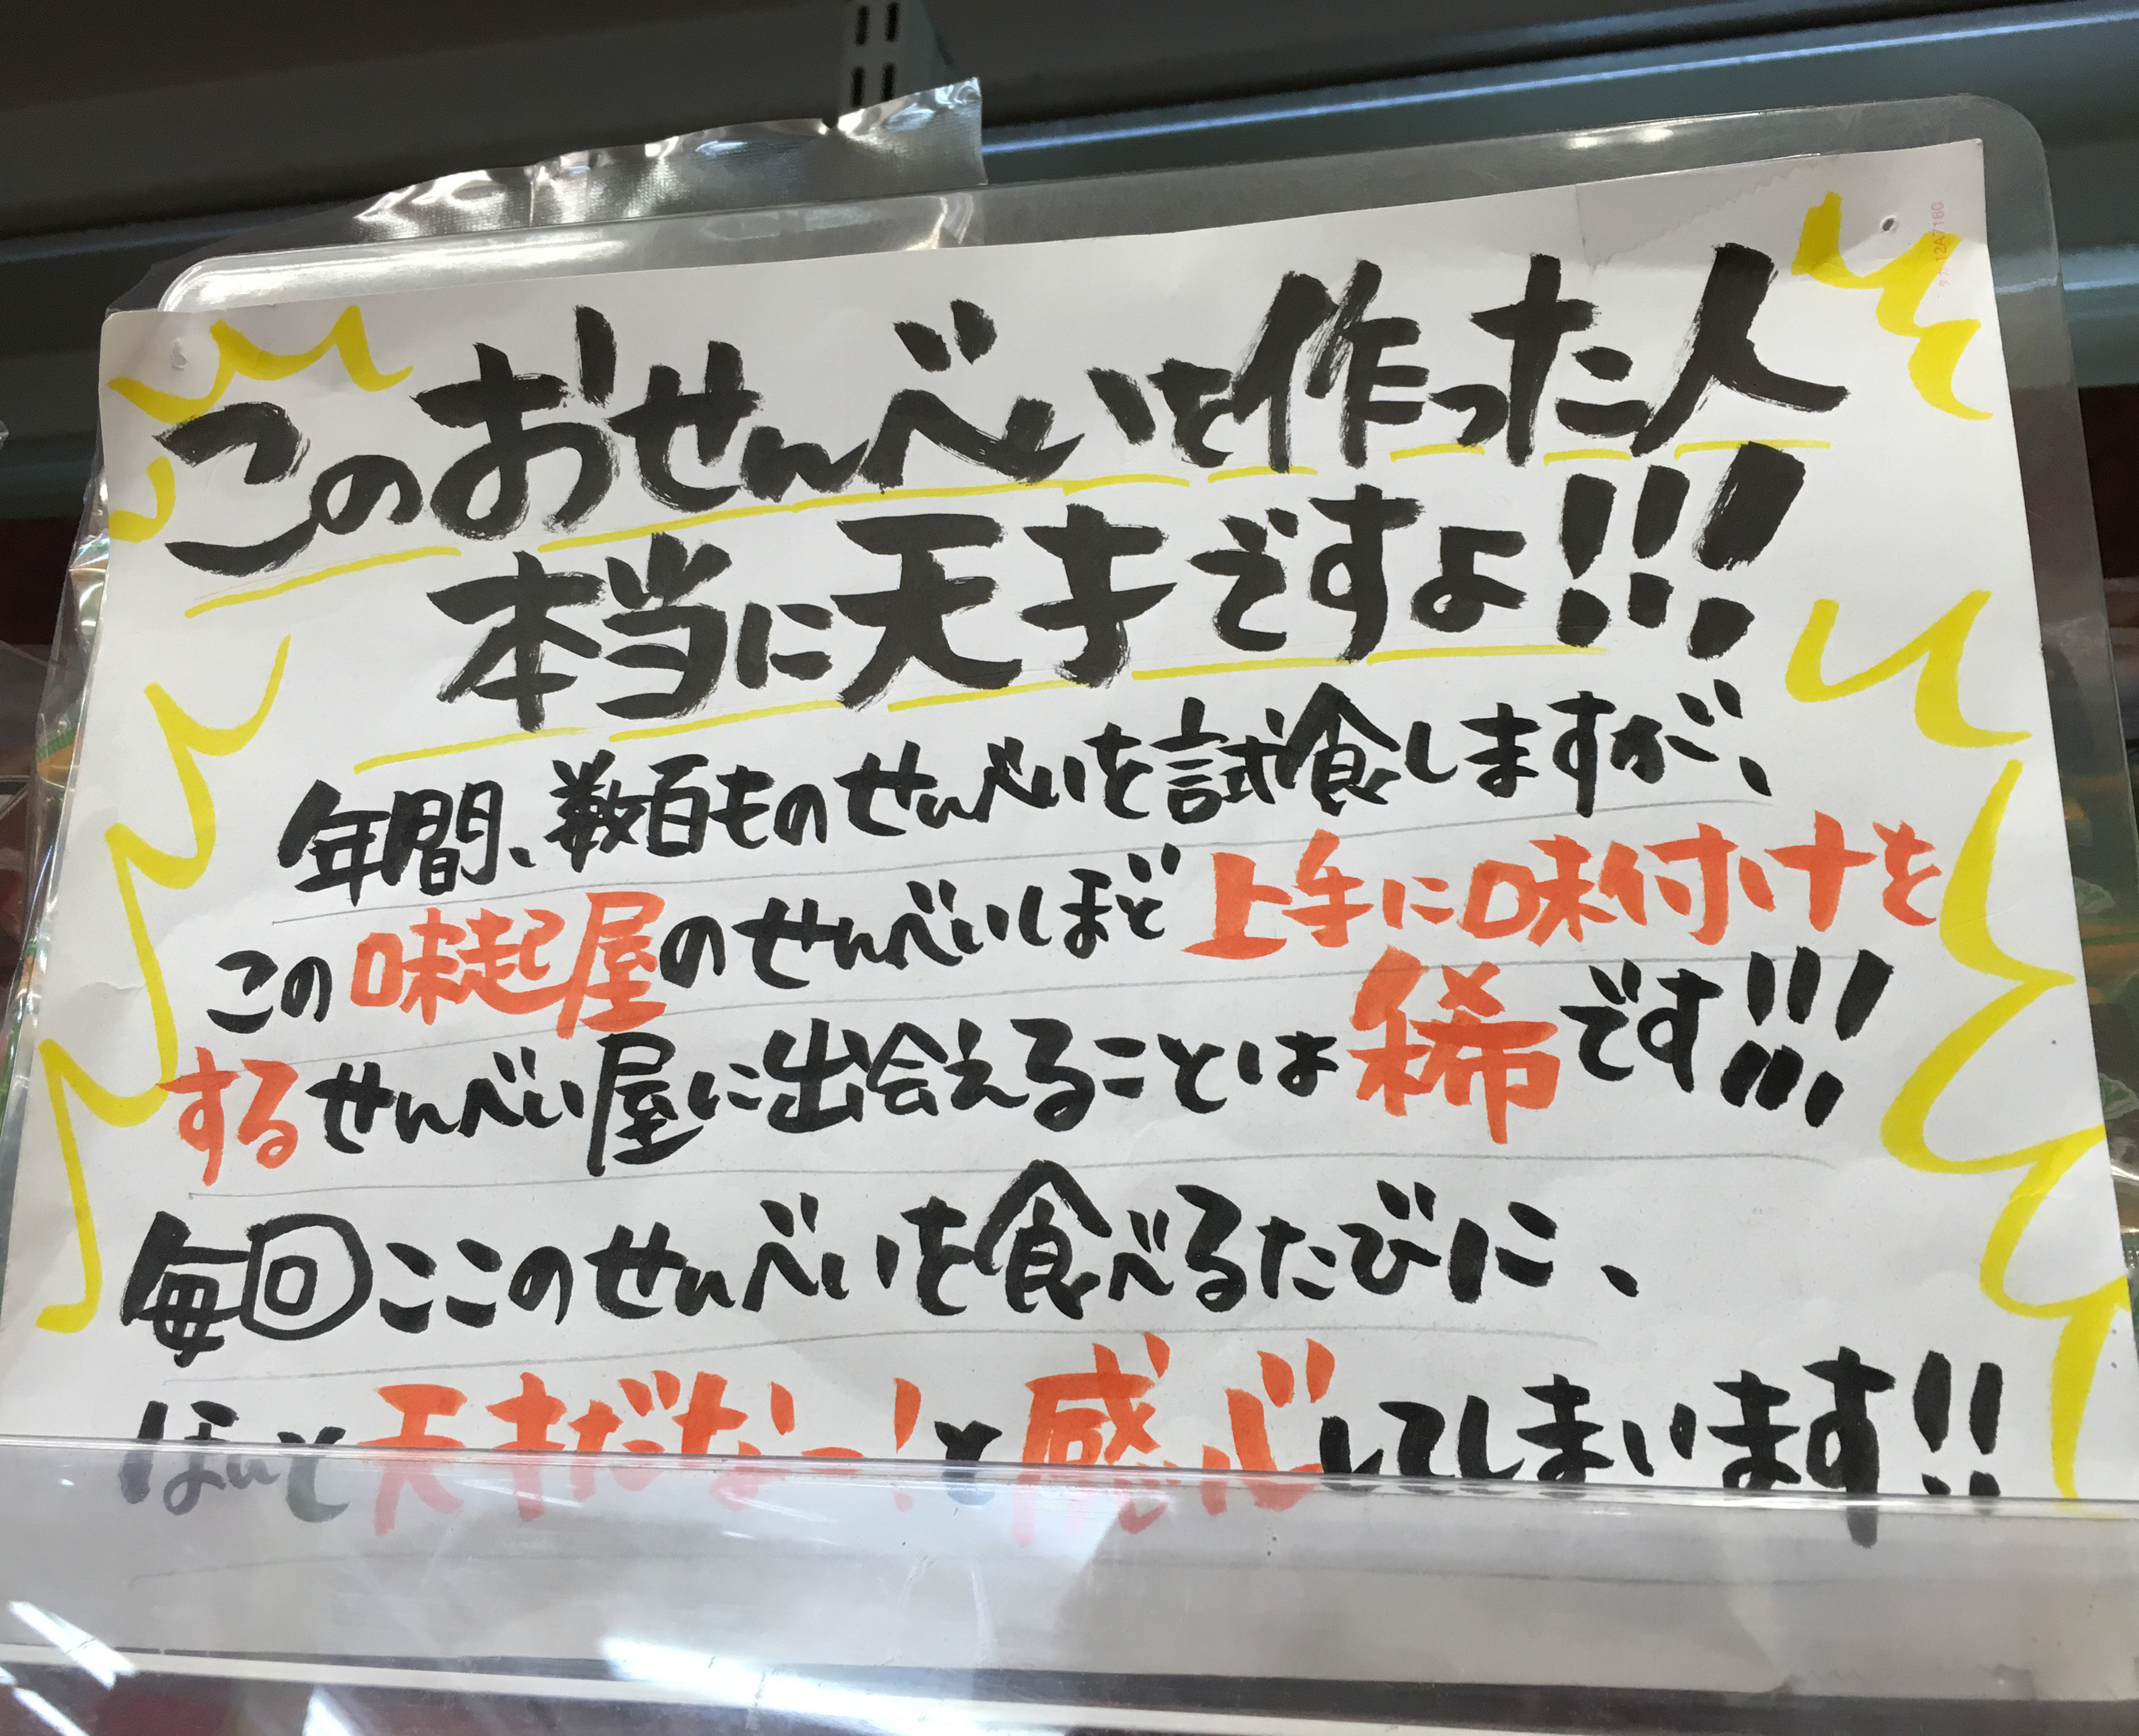 このおせんべいを作った人
本当に天才ですよ!!!
年間、数百ものせんべいを試食しますが、
この味起屋のせんべいほど上手に味付けを
するせんべい屋に出会えることは稀です!!!
毎回ここのせんべいを食べるたびに、
ほんと天才だなー!と感心してしまいます!!